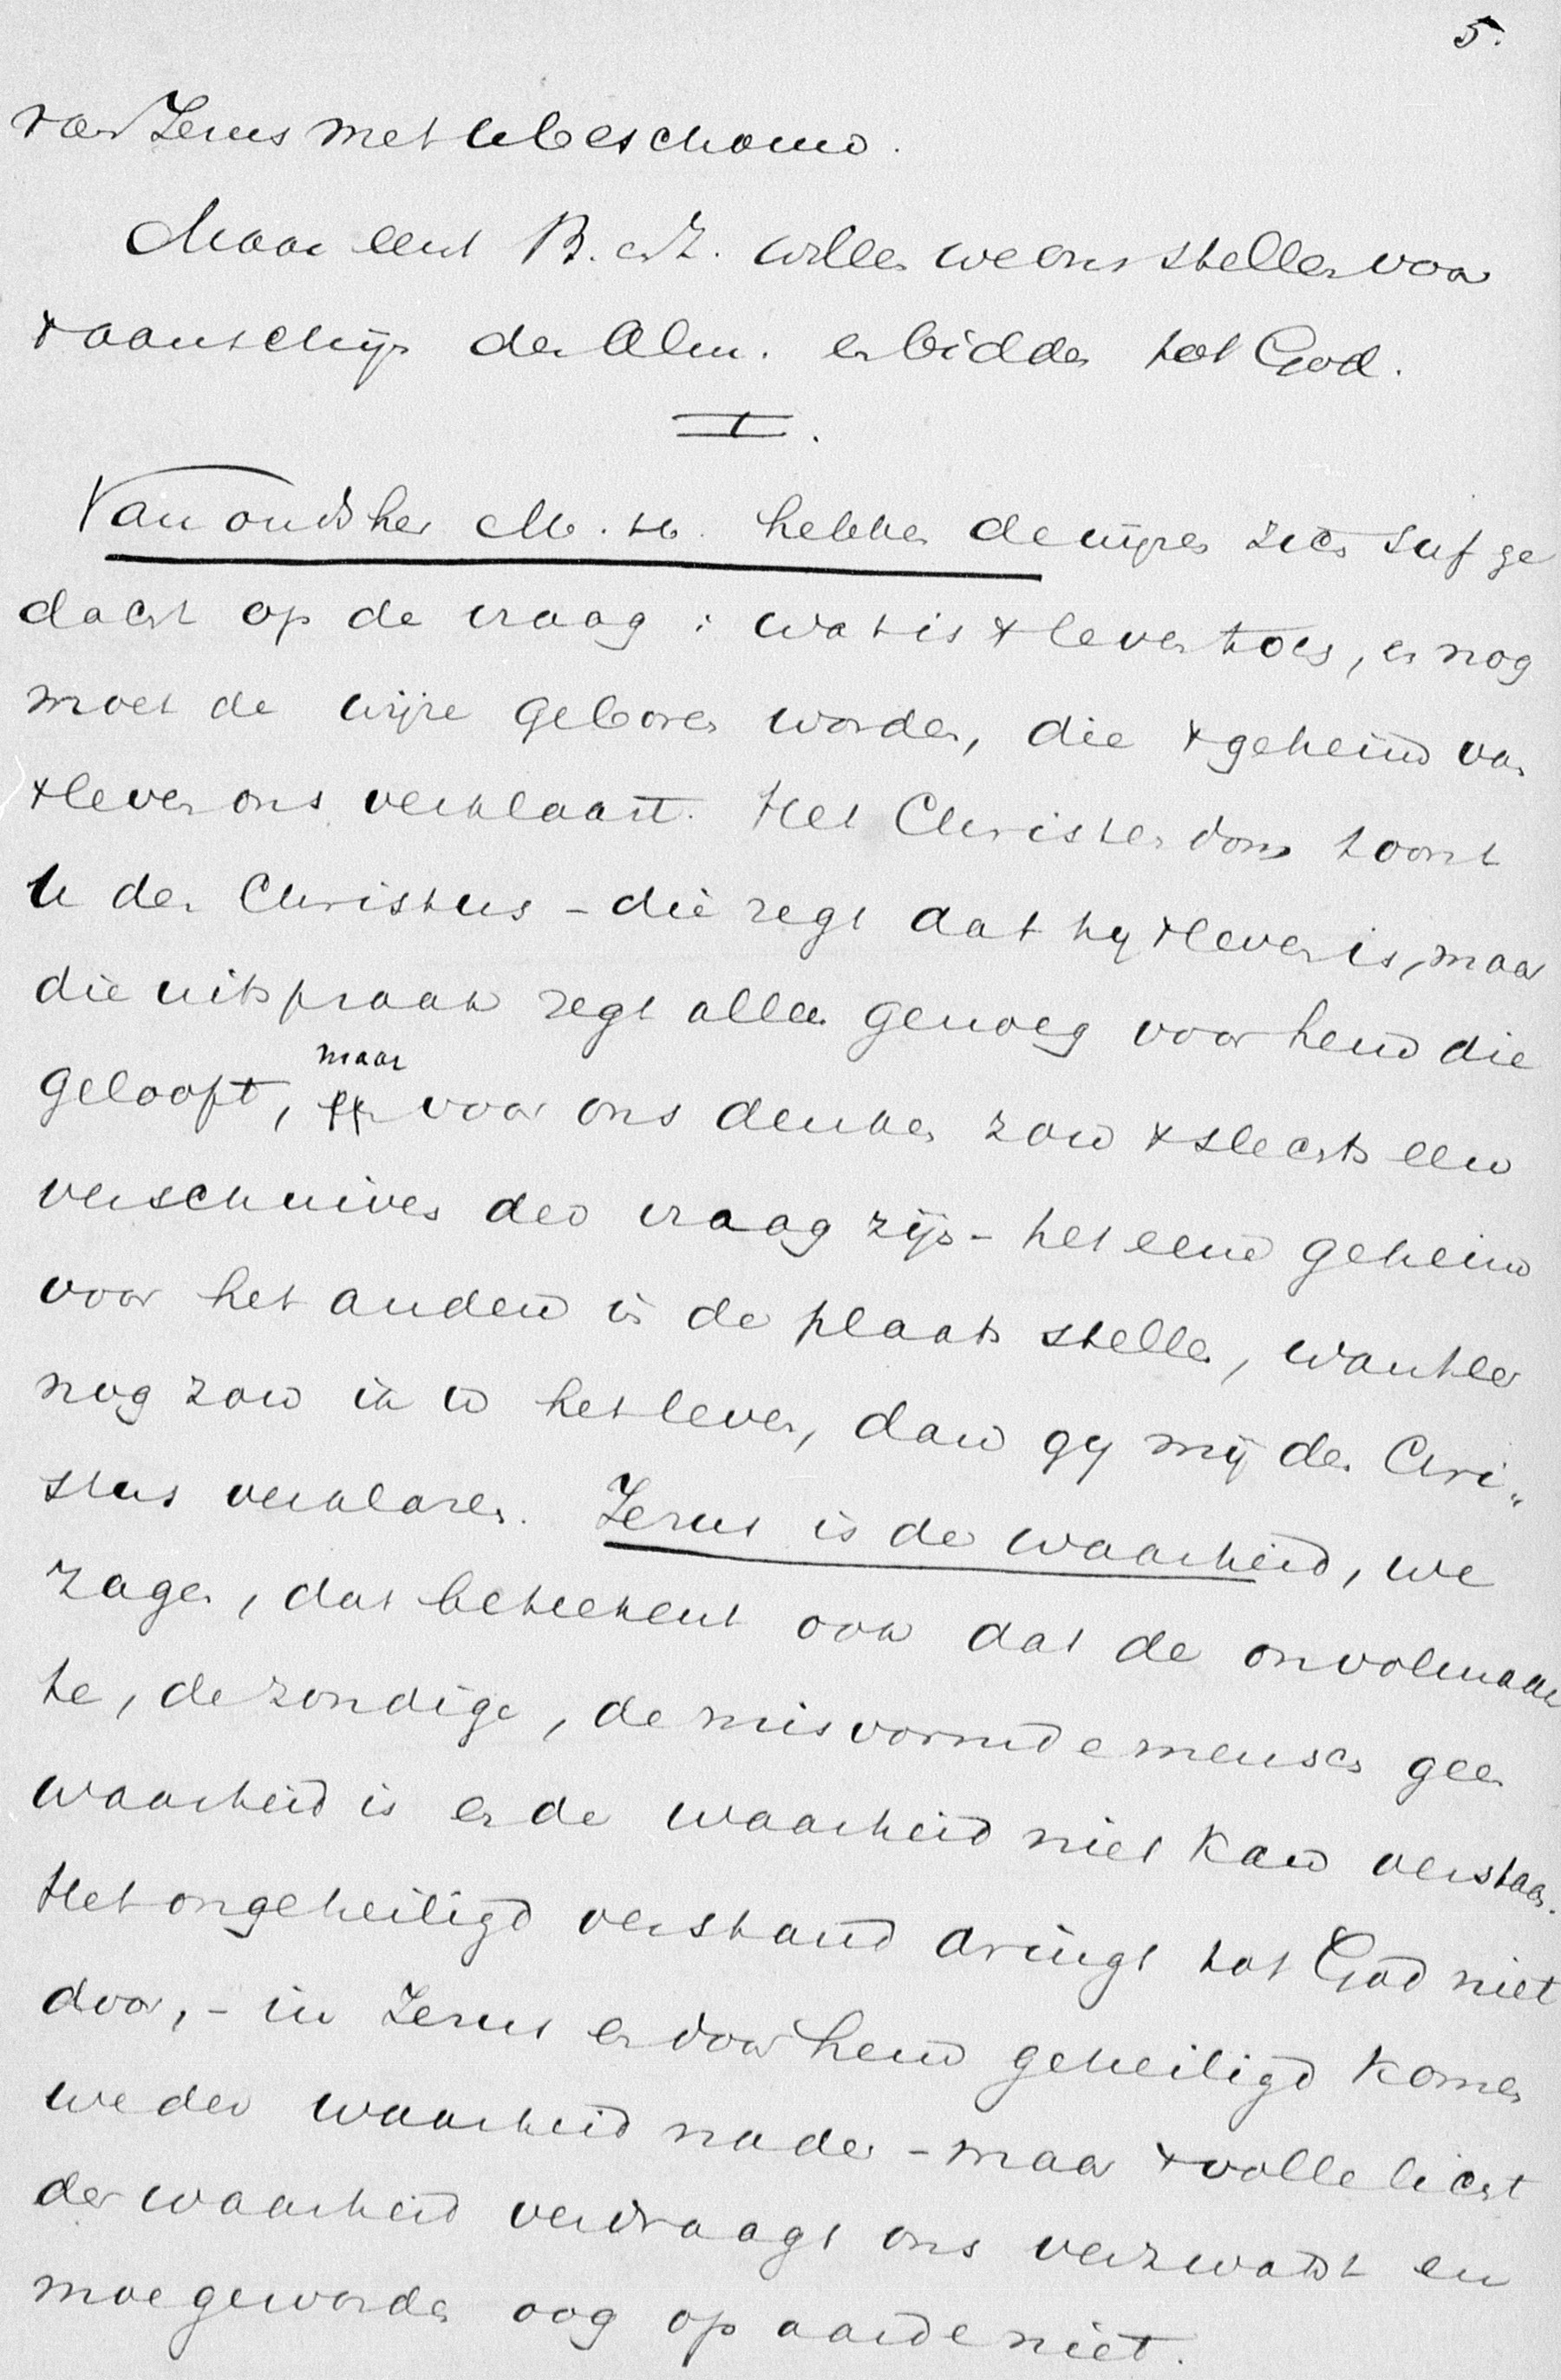 5.
van Jezus met u beschouw.
Maar eerst B. en Z. willen we ons stellen voor
x aanschijn der Alm. en bidden tot God.
I.
Van oudsher M. H. hebben de wijzen zich suf ge
dacht op de vraag: wat is x leven toch, en nog
moet de wijze geboren worden, die x geheim van
x leven ons verklaart. Het Christendom toont
U den Christus - die zegt dat hij x leven is, maar
die uitspraak zegt alleen genoeg voor hem die
maar
gelooft, voor ons denken zou x slechts een
verschuiven der vraag zijn - het eene geheim
voor het andere in de plaats stellen, want en
nog zou ik U het leven, dan gij mij den Chri"
stus verklaren. Jezus is de waarheid, we
zagen, dat beteekent ook dat de onvolmaak
te, de zondige, de misvormde mensch geen
waarheid is en de waarheid niet kan verstaan.
Het ongeheiligd verstand dringt tot God niet
door, - in Jezus en door hem geheiligd komen
we der waarheid nader - maar x volle licht
der waarheid verdraagt ons verzwakt en
moe geworden oog op aarde niet.